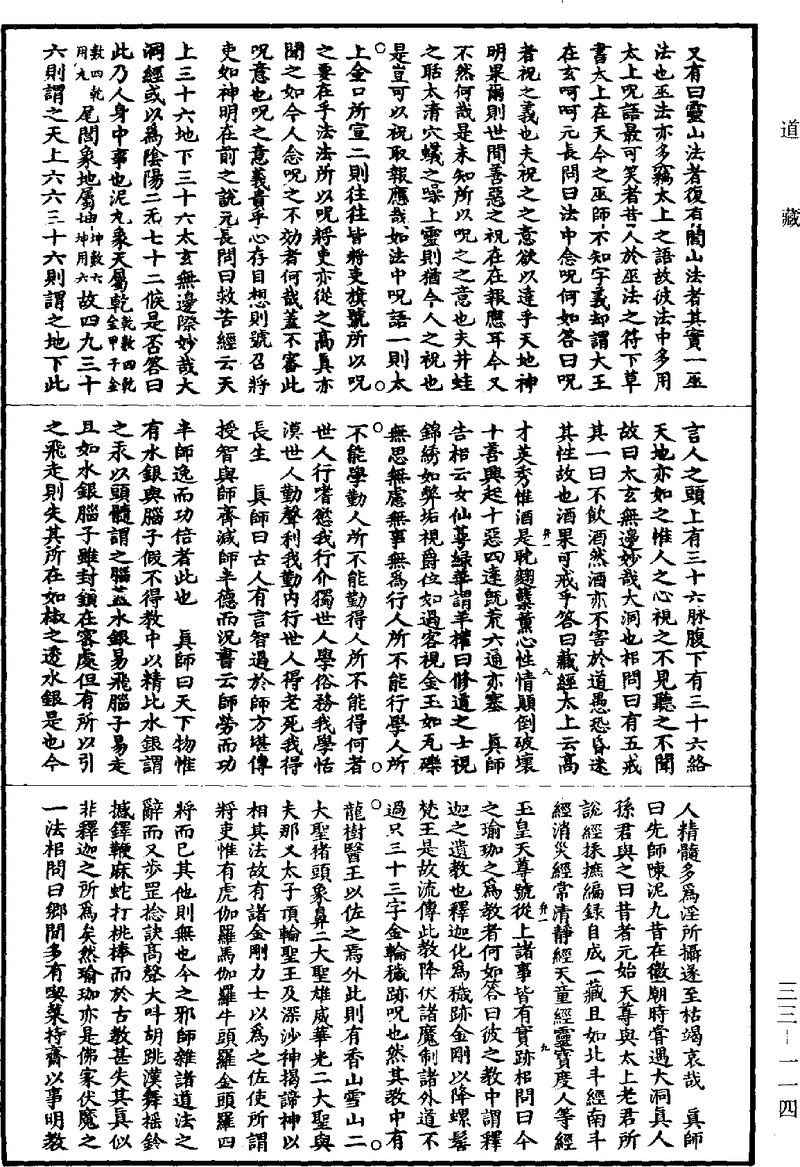 又有曰靈山法者復有閭山法者其實一巫
法也巫法亦多竊太上之語故彼法中多用
太上咒語最可笑者昔人於巫法之符下草
書太上在天今之巫師不知字義却謂大王
在玄呵呵元長問曰法中念咒何如答曰咒
者祝之義也夫祝之之意欲以達乎天地神
明果爾則世間善惡之祝在在報應耳今又
不然何哉是未知所以咒之之意也夫井蛙
之聒太清穴蟻之噪上靈則猶今人之祝也
是豈可以祝取報應哉如法中咒語一則太
上金口所宣二則往往皆將吏旗號所以咒
之要在乎法法所以咒將吏亦從之高真亦
聞之如今人念咒之不効者何哉蓋不審此
咒意也咒之意義貴乎心存目想則號召將
吏如神明在前之說元長問曰救苦經云天
上三十六地下三十六太玄無邊際妙哉大
洞經或以為陰陽二炁七十二候是否答曰
此乃人身中事也泥丸象天屬乾乾金甲子金
數四乾用九尾閭象地屬坤坤數六坤用六故四九三十
六則謂之天上六六三十六則謂之地下此
言人之頭上有三十六脉腹下有三十六絡
天地亦如之惟人之心視之不見聽之不聞
故曰太玄無邊妙哉大洞也相問曰有五戒
其一曰不飲酒然酒亦不害於道愚恐昏迷
其性故也酒果可戒乎答曰藏經太上云高
才英秀惟酒是耽麴糵薰心性情顛倒破壞
十善興起十惡四達旣荒六通亦塞　真師
告相云女仙蕚緑華謂羊權曰修道之士視
錦綉如弊垢視爵位如過客視金玉如瓦礫
無思無慮無事無為行人所不能行學人所
不能學勤人所不能勤得人所不能得何者
世人行嗜慾我行介獨世人學俗務我學恬
漠世人勤聲利我勤內行世人得老死我得
長生　真師曰古人有言智過於師方堪傳
授智與師齊減師半德而況書云師勞而功
半師逸而功倍者此也　真師曰天下物惟
有水銀與腦子假不得教中以精比水銀謂
之汞以頭髓謂之腦蓋水銀易飛腦子易走
且如水銀腦子雖封鎖在密處但有所以引
之飛走則失其所在如椒之透水銀是也今
人精髓多為淫所攝遂至枯竭哀哉　真師
曰先師陳泥丸昔在徽廟時甞遇大洞真人
孫君與之曰昔者元始天尊與太上老君所
說經採摭編錄自成一藏且如北斗經南斗
經消災經常清靜經天童經靈寶度人等經
玉皇天尊號從上諸事皆有實跡相問曰今
之瑜珈之為教者何如答曰彼之教中謂釋
迦之遺教也釋迦化為穢跡金剛以降螺髻
梵王是故流傳此教降伏諸魔制諸外道不
過只三十三字金輪穢跡咒也然其教中有
龍樹醫王以佐之焉外此則有香山雪山二
大聖猪頭象鼻二大聖雄威華光二大聖與
夫那叉太子頂輪聖王及深沙神揭諦神以
相其法故有諸金剛力士以為之佐使所謂
將吏惟有虎伽羅馬伽羅牛頭羅金頭羅四
將而已其他則無也今之邪師雜諸道法之
辭而又步罡捻訣高聲大叫胡跳漢舞搖鈴
撼鐸鞭麻蛇打桃棒而於古教甚失其真似
非釋迦之所為矣然瑜珈亦是佛家伏魔之
一法相問曰鄉間多有喫菜持齋以事明教
弁一
八
弁一
九
道藏
三三-一一四